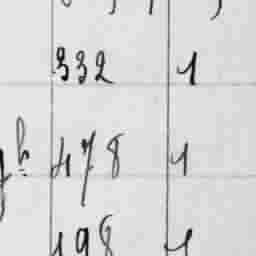 332 1
h 478 1
198 1